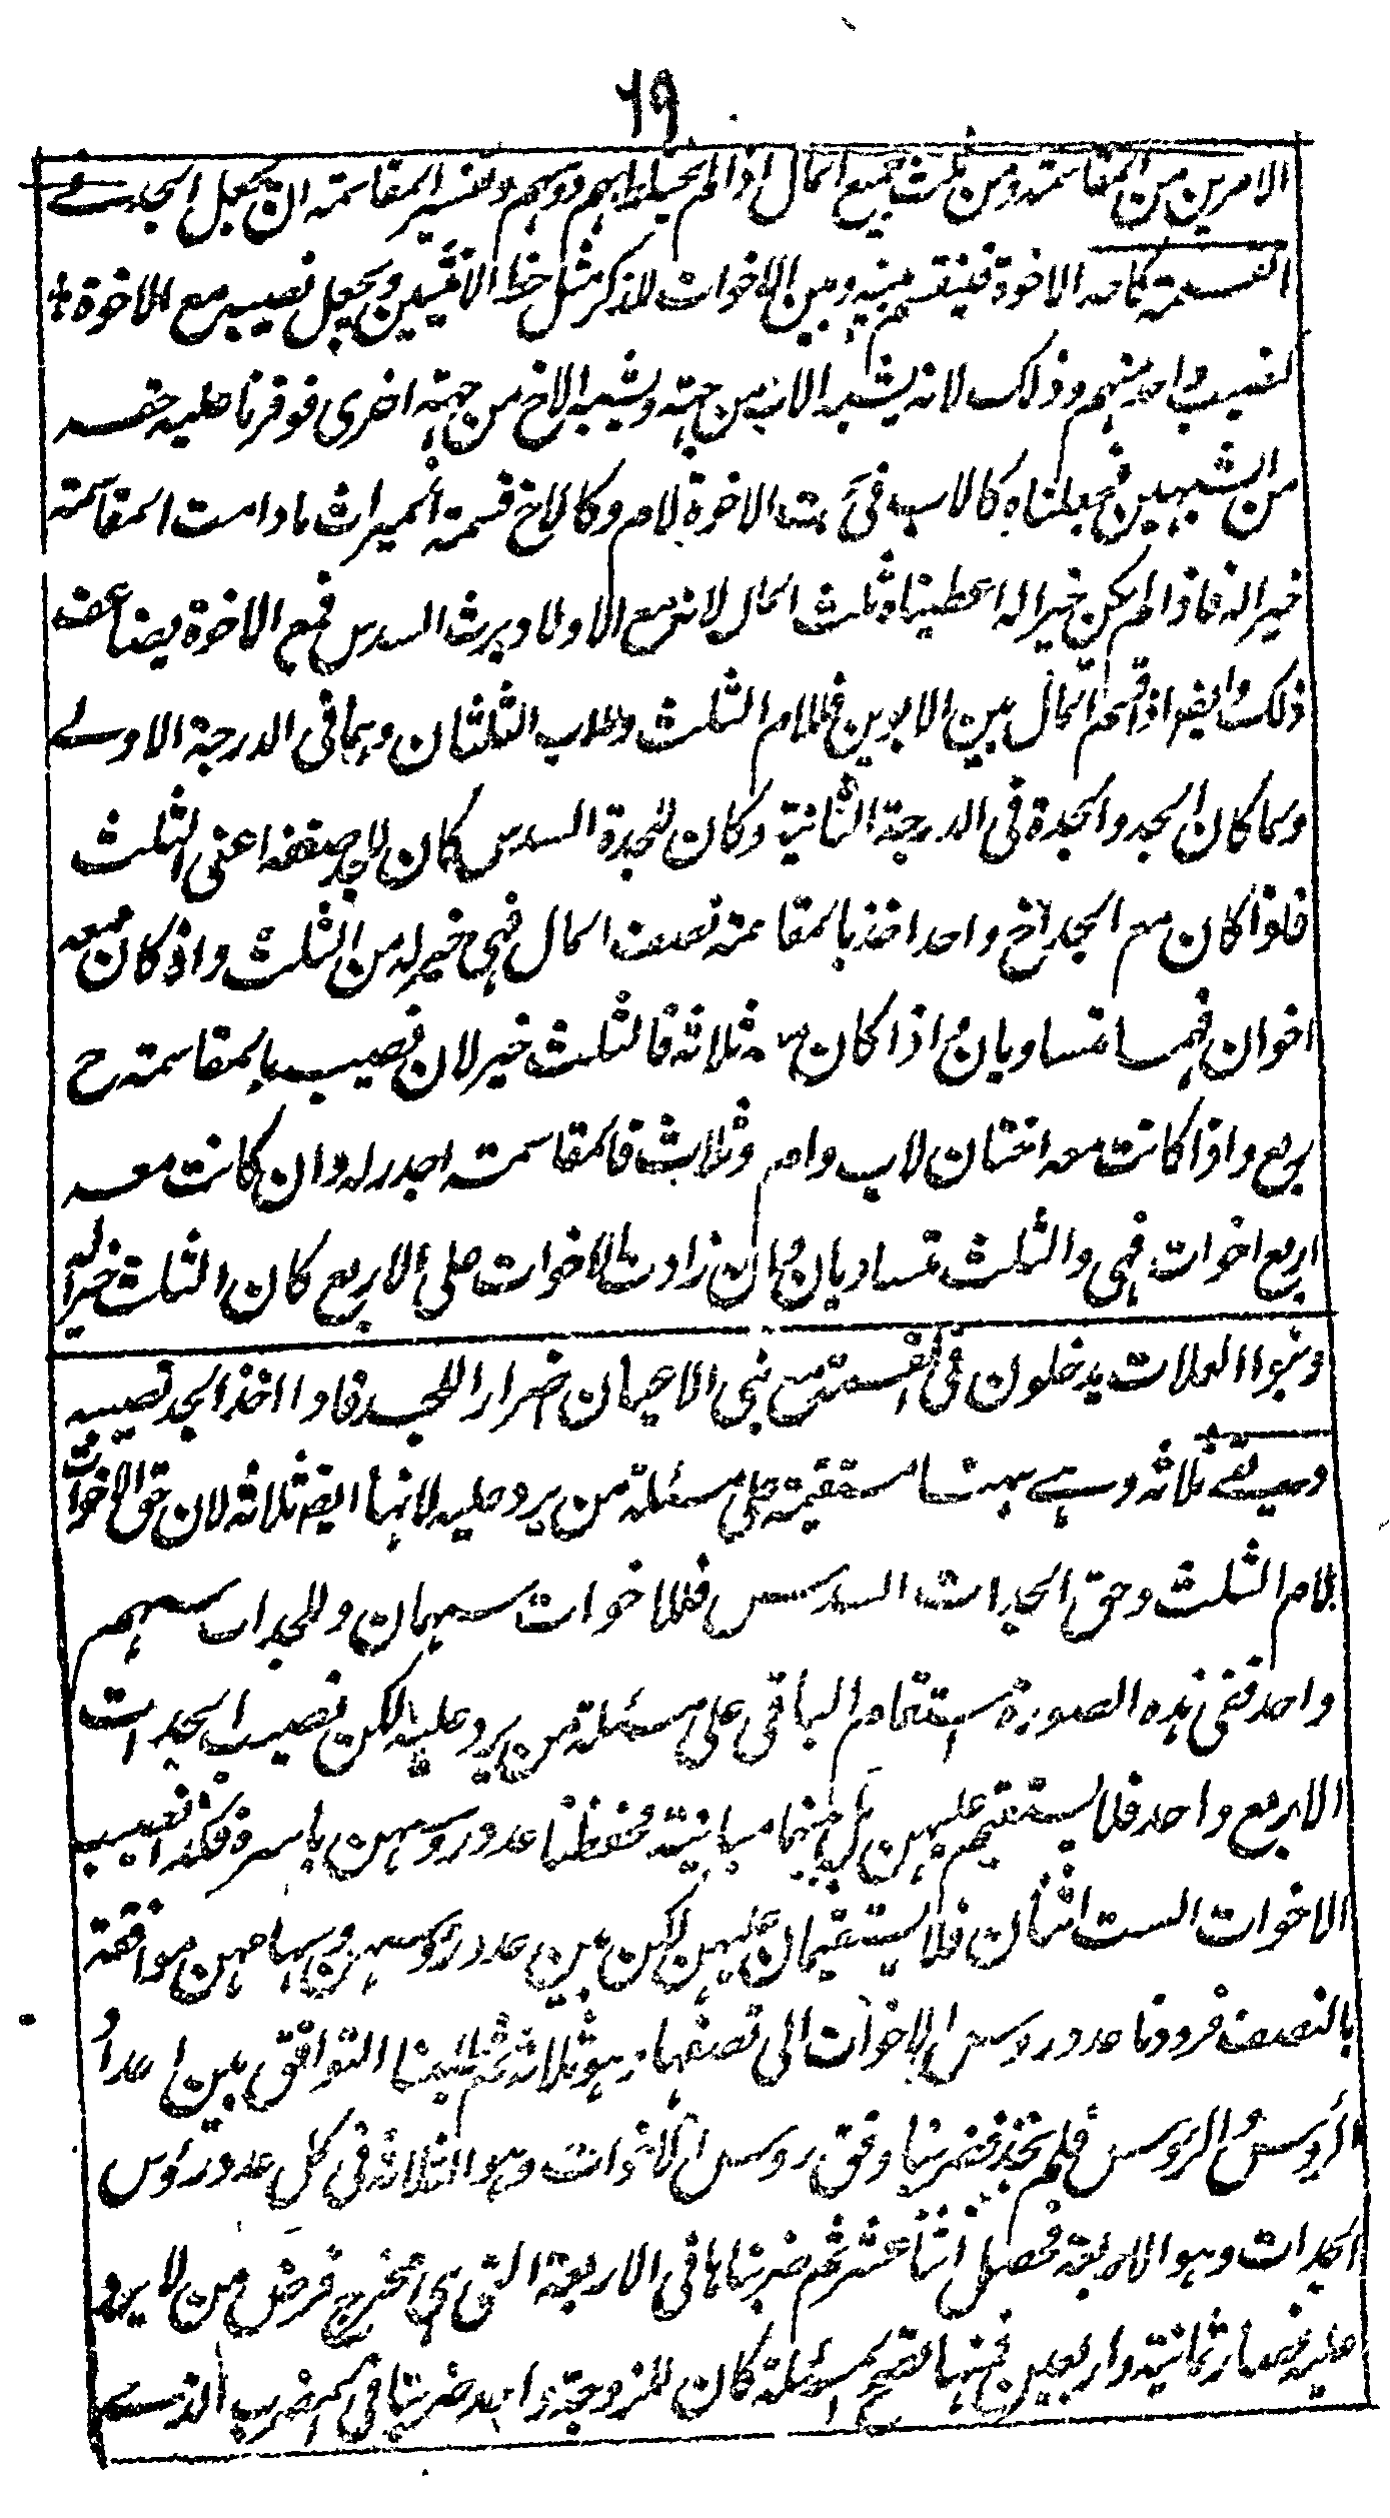 ٦٩
الامرين من المقاسمة ومن ثلث جميع المال اذا لم يختلط بهم ذو سهم وتفسير المقاسمة ان يجعل الجد في
القسمة كاحد الاخوة فيقسم بينه وبين الاخوات للذكر مثل حظ الانثيين ويجعل نصيبه مع الاخوة
كنصيب واحد منهم وذلك لانه يشبه الاب من جهة ويشبه الاخ من جهة اخرى فوفرنا عليه حقه
من الشبهين فجعلناه كالاب في حق الاخوة لام وكالاخ في قسمة الميراث ما دامت المقاسمة
خيرا له فاذا لم يكن خيرا له اعطيناه ثلث المال لانه مع الاولاد يرث السدس فمع الاخوة يضاعف
ذلك وايضا اذا قسم المال بين الابوين فللام الثلث وللاب الثلثان وهما في الدرجة الاولى
ولما كان الجد والجدة في الدرجة الثانية وكان للجدة السدس كان للجد ضعفه اعنى الثلث
فاذا كان مع الجد اخ واحد اخذ بالمقاسمة نصف المال فهي خير له من الثلث واذا كان معه
اخوان فهما متساويان واذا كان معه ثلاثة فالثلث خير لان نصيبه بالمقاسمة ح
ربع واذا كانت معه اختان لاب وام وثلاث فالمقاسمة اجدر له وان كانت معه
اربع اخوات فهي والثلث متساويان وان زادت الاخوات على الاربع كان الثلث خيرا له
وبنوا العلات يدخلون في القسمة مع بنى الاعيان ضرارا للجد فاذا اخذ الجد نصيبه
وبقي ثلاثة وهي ههنا مستقيمة على مسئلة من يرد عليه لانها ايضا ثلاثة لان حق الاخوات
لام الثلث وحق الجدات السدس فللاخوات سهمان وللجدات سهم
واحد ففى هذه الصورة استقام الباقى على مسئلة من يرد عليه لكن نصيب الجدات
الاربع واحد فلا يستقيم عليهن بل بينهما مباينة فحفظنا عدد روسهن باسره وكذا نصيب
الاخوات الست اثنان فلا يستقيمان عليهن لكن بين عدد روسهن وسهامهن موافقة
بالنصف فرددنا عدد روس الاخوات الى نصفها وهو ثلاثة ثم طلبنا التوافق بين اعداد
الروس والروس فلم نجد فضربنا وفق روس الاخوات وهو الثلاثة في كل عدد روس
الجدات وهو الاربعة فحصل اثنا عشر ثم ضربناها في الاربعة التى هي مخرج فرض من لا يرد
عليه فصار ثمانية واربعين فمنها تصح المسئلة كان للزوجة واحد ضربناه في المضروب الذي